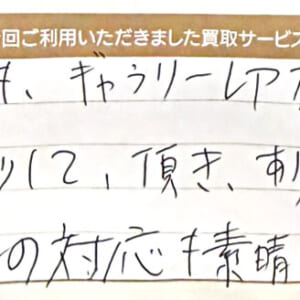 回ご利用いただきました買取サービス
、ギャラリーレア
して、頂き、
の対応も素晴